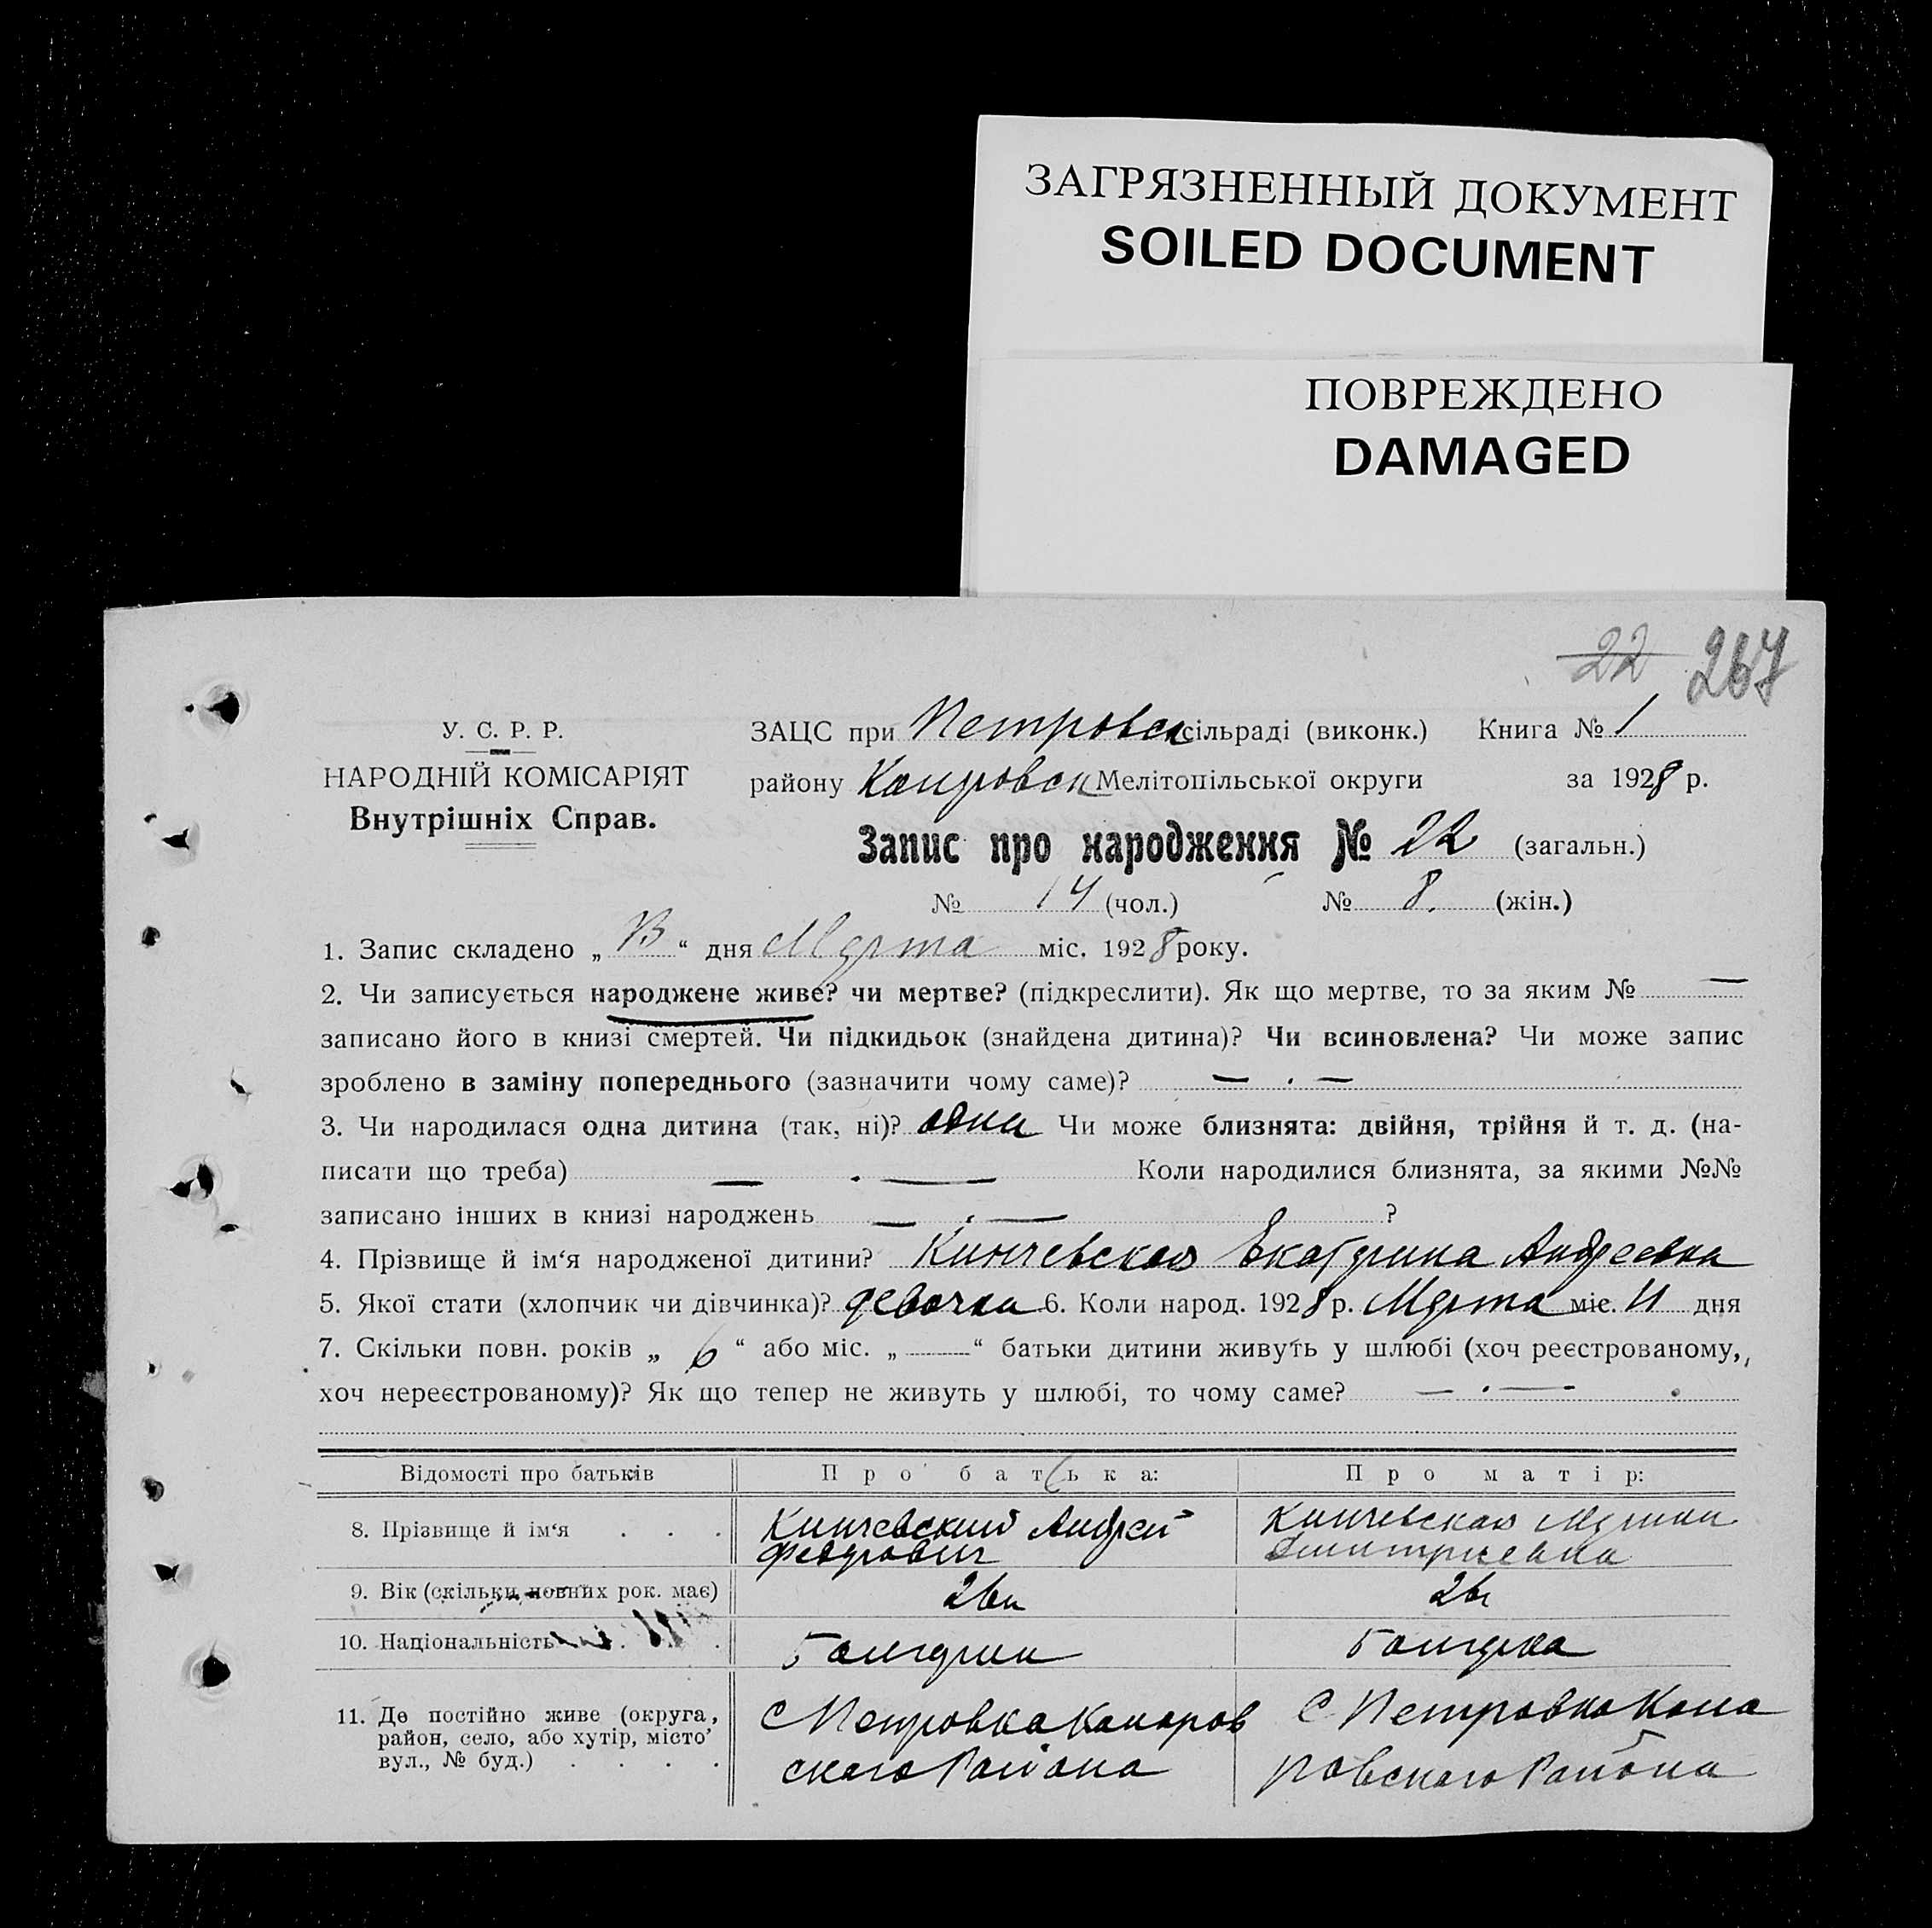 ЗАГРЯЗНЕННЫЙ ДОКУМЕНТ
SOILED DOCUMENT
ПОВРЕЖДЕНО
DAMAGED
22 267
У. С. Р. Р.
НАРОДНІЙ КОМІСАРІЯТ
Внутрішніх Справ.
ЗАЦС при Петровск сільраді (виконк.) Книга № 1
району Мелітопільської округи за 1928 р.
Запис про народження № 22 (загальн.)
№ 14 (чол.) № 8. (жін.)
1. Запис складено „ “ дня Марта міс. 1928 року.
2. Чи записується народжене живе? чи мертве? (підкреслити). Як що мертве, то за яким № —
записано його в книзі смертей. Чи підкидьок (знайдена дитина)? Чи всиновлена? Чи може запис
зроблено в заміну попереднього (зазначити чому саме)? — . —
3. Чи народилася одна дитина (так, ні)? одна Чи може близнята: двійня, трійня й т. д. (на-
писати що треба) — . — Коли народилися близнята, за якими №№
записано інших в книзі народжень — . — ?
4. Прізвище й ім‘я народженої дитини? Кинчевская Екатерина Андреевна
5. Якої стати (хлопчик чи дівчинка)? девочка 6. Коли народ. 1928 р. Марта міс. 11 дня
7. Скільки повн. років „ 6 “ або міс. „ — “ батьки дитини живуть у шлюбі (хоч реєстрованому,
хоч нереєстрованому)? Як що тепер не живуть у шлюбі, то чому саме? — . — .
Відомості про батьків Про батька: Про матір:
8. Прізвище й ім‘я . . . Кинчевский Андрей Кинчевская
Федрович Дмитриевна
9. Вік (скільки повних рок. має) 26 26
10. Національність Болгарин Болгарка
11. Де постійно живе (округа,
район, село, або хутір, місто
вул., № буд.) . . . .
С Петровка Конаров
ского Района
С Петровка Кона
ровского Района